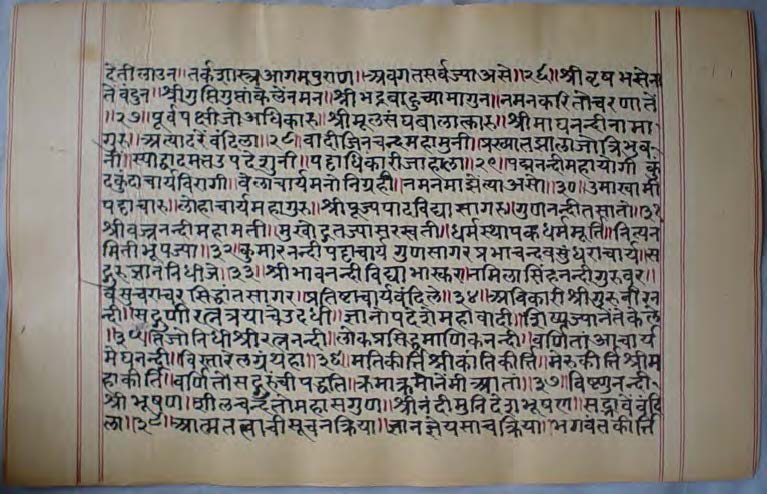 देती लाउन॥ तर्कशास्त्र आगमपुराण॥ अवगत सर्व ज्या असे॥२६॥ श्री वृषभसेना
ते वंदुन॥ श्रीगुप्तिगुप्तां केलें नमन॥ श्री भद्रबाहुच्या मागुन॥ नमन करितो चरणातें
॥२७॥ पूर्वपक्षी जो अधिकारु॥ श्री मूलसंघ बालात्कारु॥ श्री माघनन्दी नामा
गुरु॥ अत्यादरें वंदिला॥२८॥ वादी जिनचन्द्र महामुनी॥ प्रख्यात झाला जो त्रिभुव
नी॥ स्याद्वादमत उपदेशुनी॥ पट्टाधिकारी जाहाला॥२९॥ पद्मनन्दी महायोगी कुं
दकुंदाचार्य विरागी॥ वेलाचार्य मनोनिग्रही॥ नमन माझें त्या असो॥३०॥ उमास्वामी
पट्टाचारु॥ लोहाचार्य महागुरु॥ श्री पूज्यपाद विद्यासागरु॥ गुणनन्दी तसा तो॥३१
श्री वज्रनन्दी महामती॥ मुखोद्गत ज्या सरस्वती॥ धर्मस्थापक धर्ममूर्ति॥ नित्य न
मिती भूप ज्या॥३२॥ कुमारनन्दी पट्टाचार्य गुणसागर प्रभाचन्द्र वसुंधराचार्य॥ स
द्गुरु ज्ञाननिधी जे॥३३॥ श्री भावनन्दी विद्याभास्करु॥ नमिला सिंहनन्दी गुरुवरु॥
वसुचराचर सिद्धांतसागर॥ प्रतिष्टाचार्य वंदिले॥३४॥ अविकारी श्री गुरु वीरन
न्दी॥ सद्गुणी रत्नत्रयाचे उदधी॥ ज्ञानोपदेशे महावादी॥ शिष्य ज्यानें ते केले
॥३५॥ तेजोनिधी श्री रत्ननन्दी॥ लोकप्रसिद्ध माणिकनन्दी॥ वर्णितां आचार्य
मेघनन्दी॥ विस्तारल ग्रंथ हा॥३६॥ मतिकीर्ति श्री कांतिकीर्ति॥ मेरुकीर्ति श्री म
हाकीर्ति॥ वर्णितो सद्गुरुंची पद्धति॥ क्रमाक्रमानें मी आतां॥३७॥ विष्णुनन्दी
श्री भूषण॥ शीलचन्द्र तो महासगुण॥ श्री नंदी मुनि देशभूषण॥ सद्भावें वंदि
ला॥३८॥ आत्मतत्वाची सूचन क्रिया॥ ज्ञान ज्ञेय साच क्रिया॥ भगवंत कीर्ति